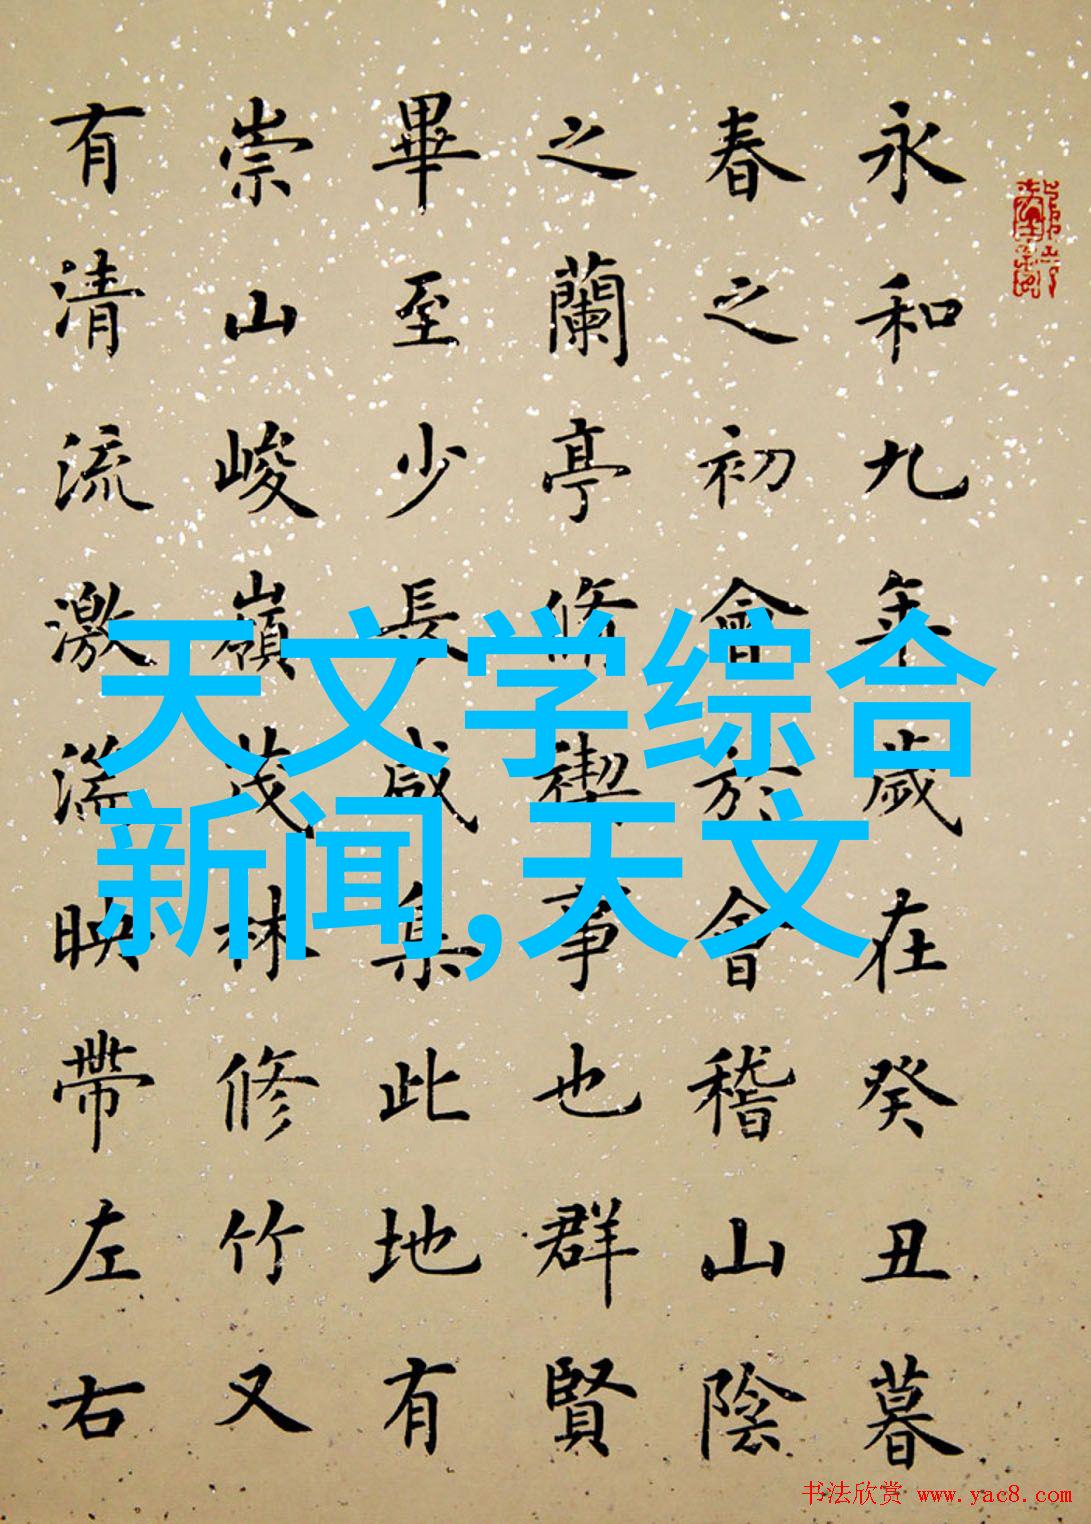 永和九年歲在癸丑暮
春之初會於會稽山陰
之蘭亭脩禊事也群賢
畢至少長咸集此地有
崇山峻嶺茂林修竹又
有清流激湍映帶左右
天文学综合
新闻,天文
书法欣赏 www.yac8.com